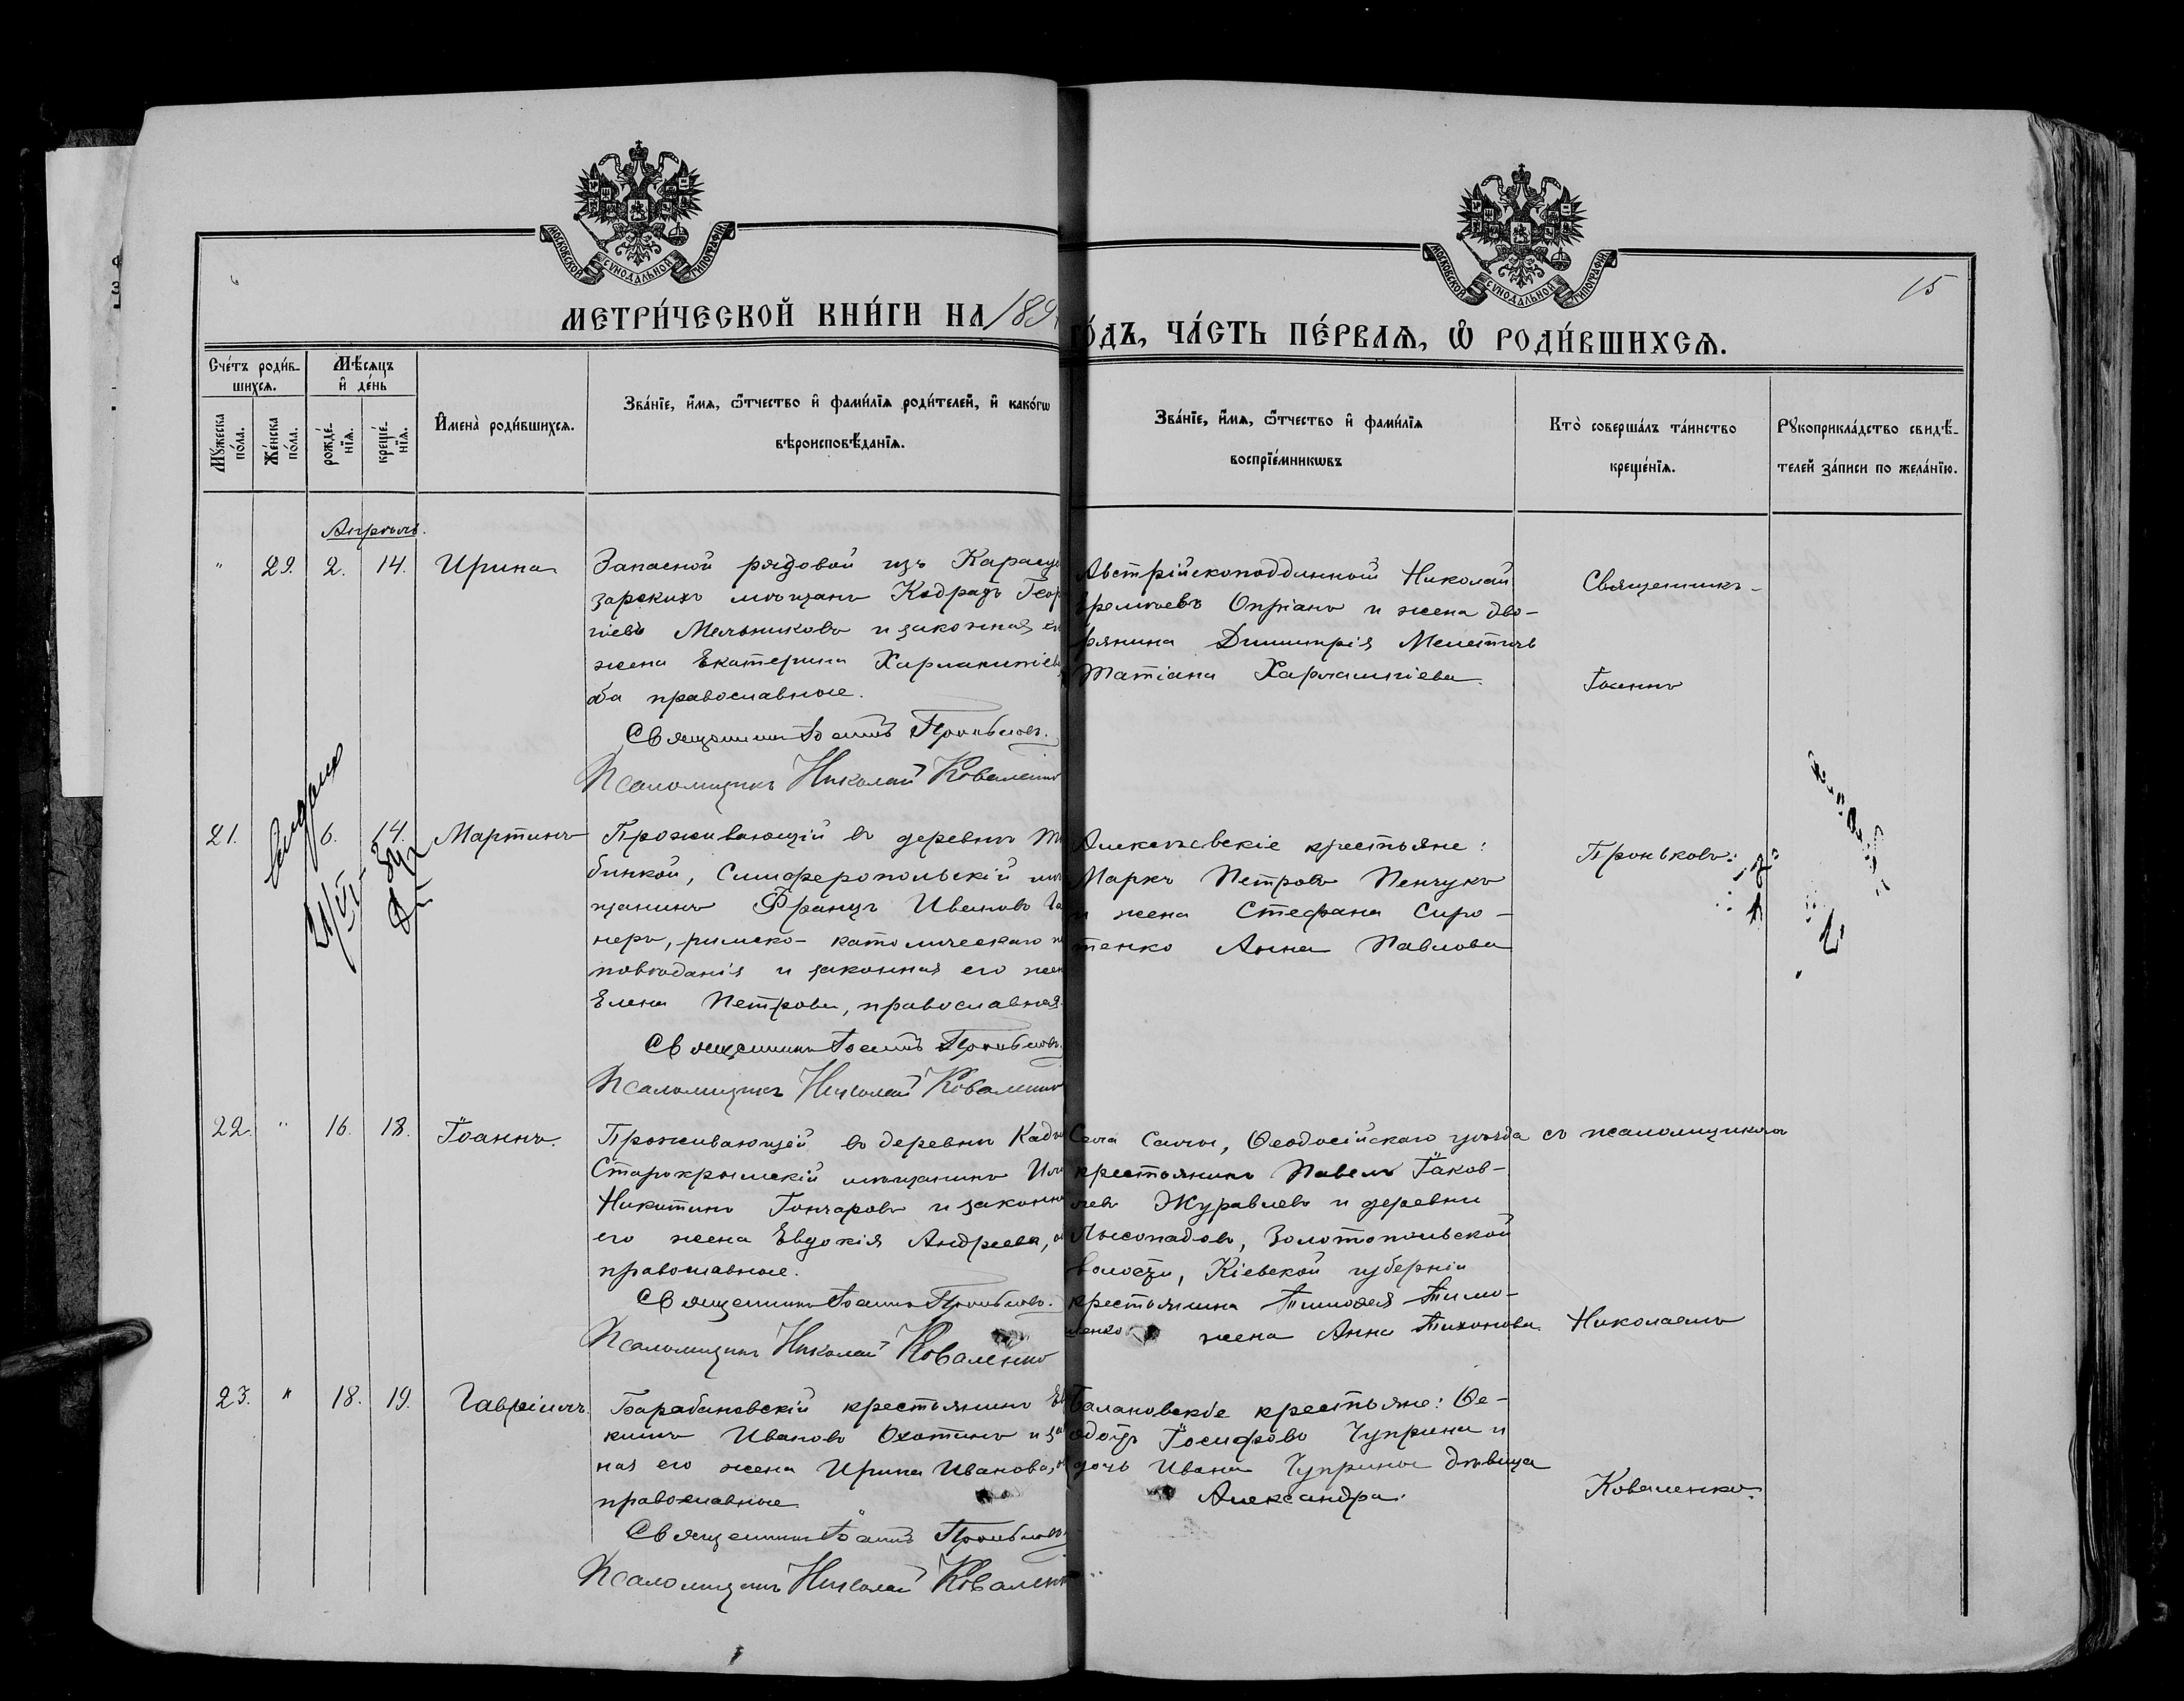 МОСКОВСКОЙ СѴНОДАЛЬНОЙ ТИПОГРАФІИ
МОСКОВСКОЙ СѴНОДАЛЬНОЙ ТИПОГРАФІИ
15
МЕТРИ́ЧЕСКОЙ КНИ́ГИ НА 189
ГО́ДЪ, ЧА́СТЬ ПЕ́РВАѦ, Ѡ҆ РОДИ́ВШИХСѦ.
Сче́тъ роди́в-
шихсѧ.
Мѣ́сѧцъ
и҆ де́нь
Мꙋ́жеска
по́ла.
Же́нска
по́ла.
рожде́-
нїѧ.
креще́-
нїѧ.
И҆мена̀ роди́вшихсѧ.
Зва́нїе, и҆́мѧ, ѻ҆́тчество и҆ фамѝлїѧ роди́телей, и҆ како́гѡ
вѣроисповѣ́данїѧ.
Зва́нїе, и҆́мѧ, ѻ҆́тчество и҆ фами́лїѧ
воспрїе́мникѡвъ
Кто̀ соверша́лъ та́инство
креще́нїѧ.
Рꙋкоприкла́дство свидѣ́-
телей за́писи по жела́нїю.
Апрѣль.
" 29. 2. 14. Ирина
Запасной рядовой изъ Карасу
зарскихъ мѣщанъ Кодратъ Геор
гіевъ Мельниковъ и законная ег
жена Екатерина Харлампіев
оба православные.
Священникъ Іоаннъ Проньковъ.
Псаломщикъ Николай Коваленко
Австрійскоподданный Николай
Еремѣевъ Опріанъ и жена дво-
рянина Димитрія
Татіана Харлампіева.
Священникъ
Іоаннъ
21. 6. 14. Мартинъ
Проживающій въ деревнѣ
бинкой, Симферопольскій мѣ
щанинъ Францъ Ивановъ
неръ, римско-католическаго
повѣданія и законная его жен
Елена Петрова, православная.
Священникъ Іоаннъ Проньковъ.
Псаломщикъ Николай Коваленко
Алексѣевскіе крестьяне:
Маркъ Петровъ Пенчукъ
и жена Стефана Сиро-
тенко Анна Павлова
Проньковъ:
22. " 16. 18. Іоаннъ.
Проживающій въ деревнѣ Кады
Старокрымскій мѣщанинъ
Никитинъ Гончаровъ и законн
его жена Евдокія Андреева,
православные.
Священникъ Іоаннъ Проньковъ.
Псаломщикъ Николай Коваленко
Села Салы, Ѳеодосійскаго уѣзда
крестьянинъ Павелъ Іаков-
левъ Журавлевъ и деревни
Золотопольской
волости, Кіевской губерніи
крестьянина Тимоѳея Тимо-
ѳенко жена Анна Тихонова.
съ псаломщикомъ
Николаемъ
23. " 18. 19. Гавріилъ.
Барабановскій крестьянинъ
кимъ Ивановъ Охотинъ и за
ная его жена Ирина Иванова,
православные
Священникъ Іоаннъ Проньковъ
Псаломщикъ Николай Коваленко
Балановскіе крестьяне: Ѳе-
одотъ Іосифовъ Чуприна и
дочь Ивана Чуприны дѣвица
Александра.
Коваленко.